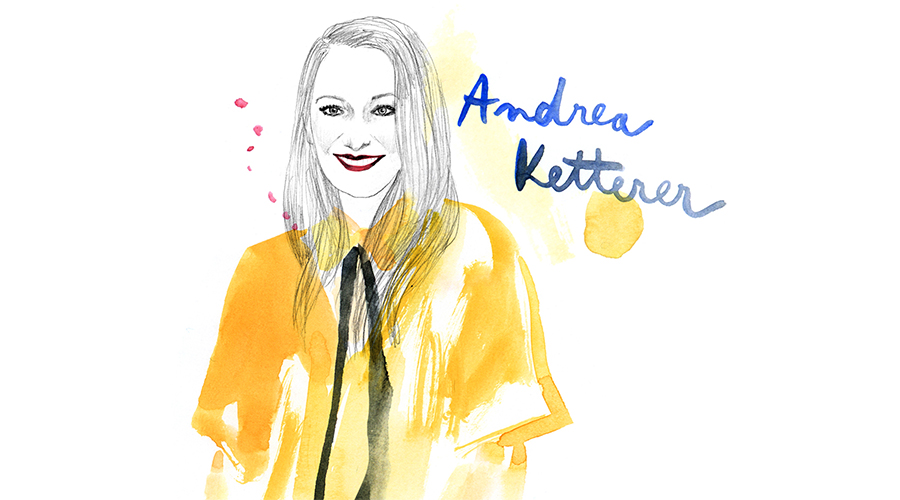 Andrea
Ketterer